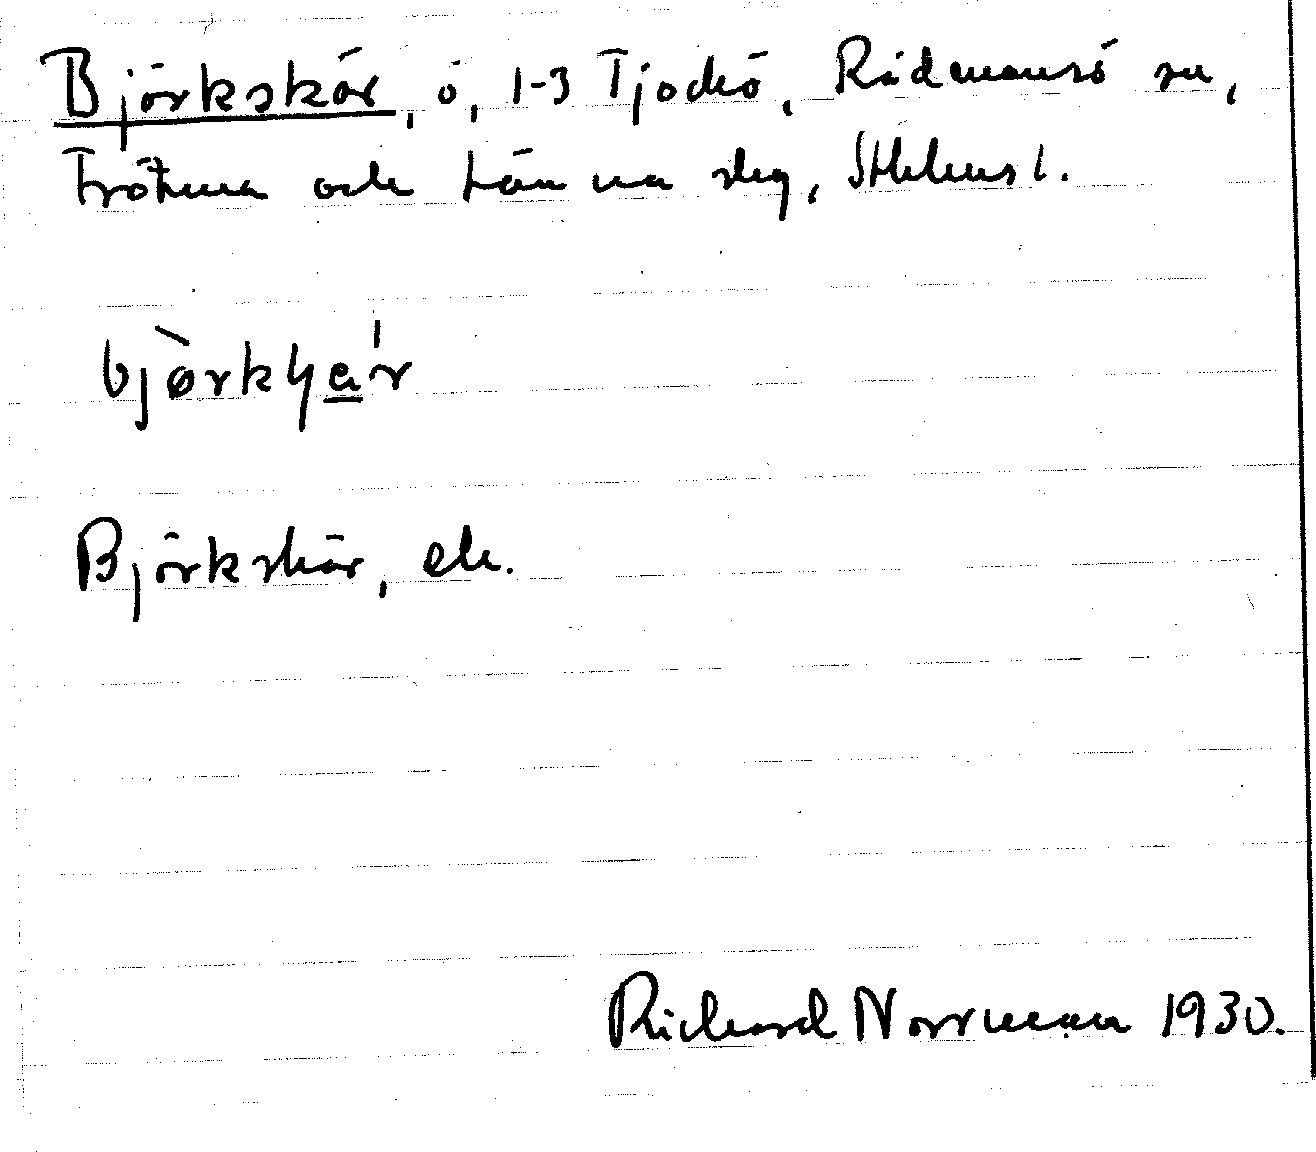 Björkskär, ö, 1-3 Tjockö, Rådmansö sn,
Frötuna och Länna skg, Sthlms l.
bjòrkɥa̲'r
Björkskär, ek.
Richard Norrman 1930.